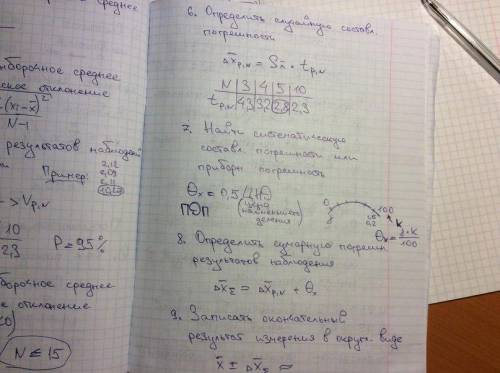 среднее
выборочное среднее
отклонение
(xᵢ-x̄)²
N-1
результатов наблюдений
Пример: 2,12
> Vp,N
10
2,3
P = 95%
выборочное среднее
е отклонение
N ≤ 15
6. Определить случайную составл.
погрешность
Δx̄p,N = Sx̄ · tp,N
N | 3 | 4 | 5 | 10
tp,N | 4,3 | 3,2 | 2,8 | 2,3
7. Найти систематическую
составл. погрешности или
приборн. погрешность
θx = 0,5/ЦНД
(цена наименьшего деления)
ПЭП
0 100
K
θx = γ·K/100
8. Определить суммарную погрешн.
результатов наблюдения
Δx̄Σ = Δx̄p,N + θx
9. Записать окончательный
результат измерения в округл. виде
x̄ ± Δx̄Σ ≈